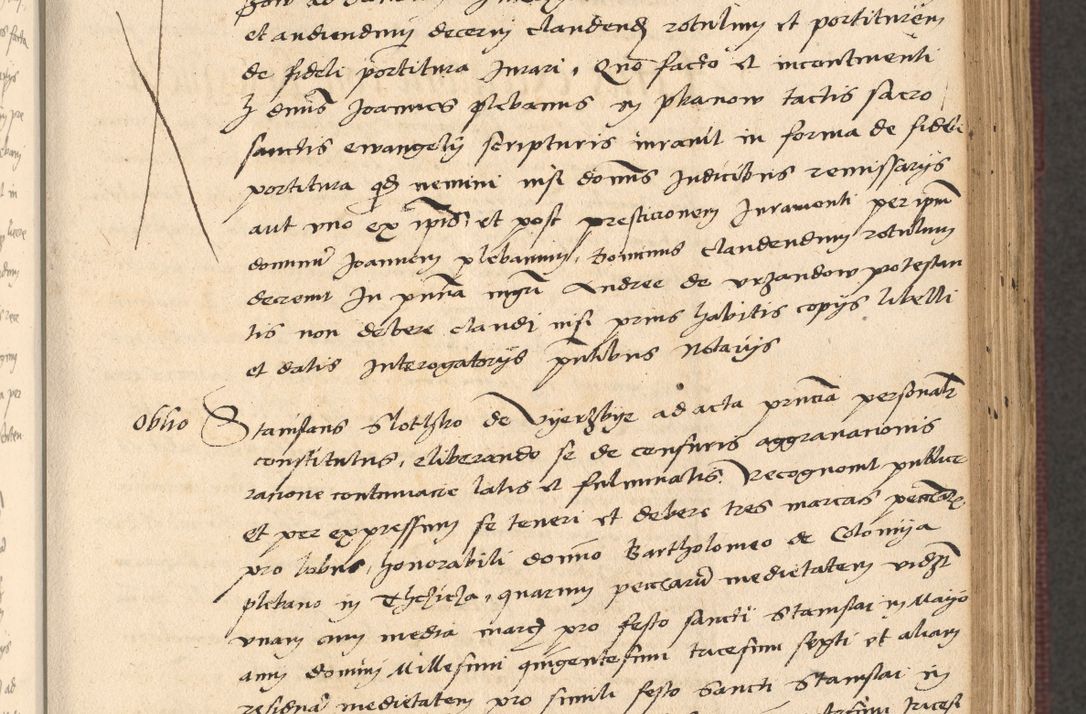 et audiendum decerni claudendum rotulum et portitorem
de fideli portitura Jurari, Quo facto et incontinenti
Idem dnus Joannes plebanus in pkanow tactis sacro
sanctis ewangelij scripturis iuravit in forma de fideli
portitura qd nemini nisi domnis Judicibus remissarijs
aut uno ex ipsis, et post prestitionem Juramenti per ipsum
dominum Joannem plebanum, Dominus claudendum rotulum
decrevit In pntia mgri Andree de urzandow protestan
tis non debere claudi nisi prius habitis copijs libelli
et datis Interogatorijs pntibus Notarijs
Oblio Stanislaus Slothko de Vyerzbye ad acta pntia personalr
constitutus, eliberando se de censuris aggravacionis
racione contumacie latis et fulminatis, Recognovit publice
et per expressum se teneri et debere tres marcas peccar
pro lobus, honorabili domino Bartholomeo de Colomija
plebano in quarum peccarum medietatem videlt
unam cum media marcam pro festo sancti Stanislai in Mayo
anni domini Millesimi quingentesimi tricesimi septi et aliam
residuam medietatem pro simili festo Sancti Stanislai in
tricesi